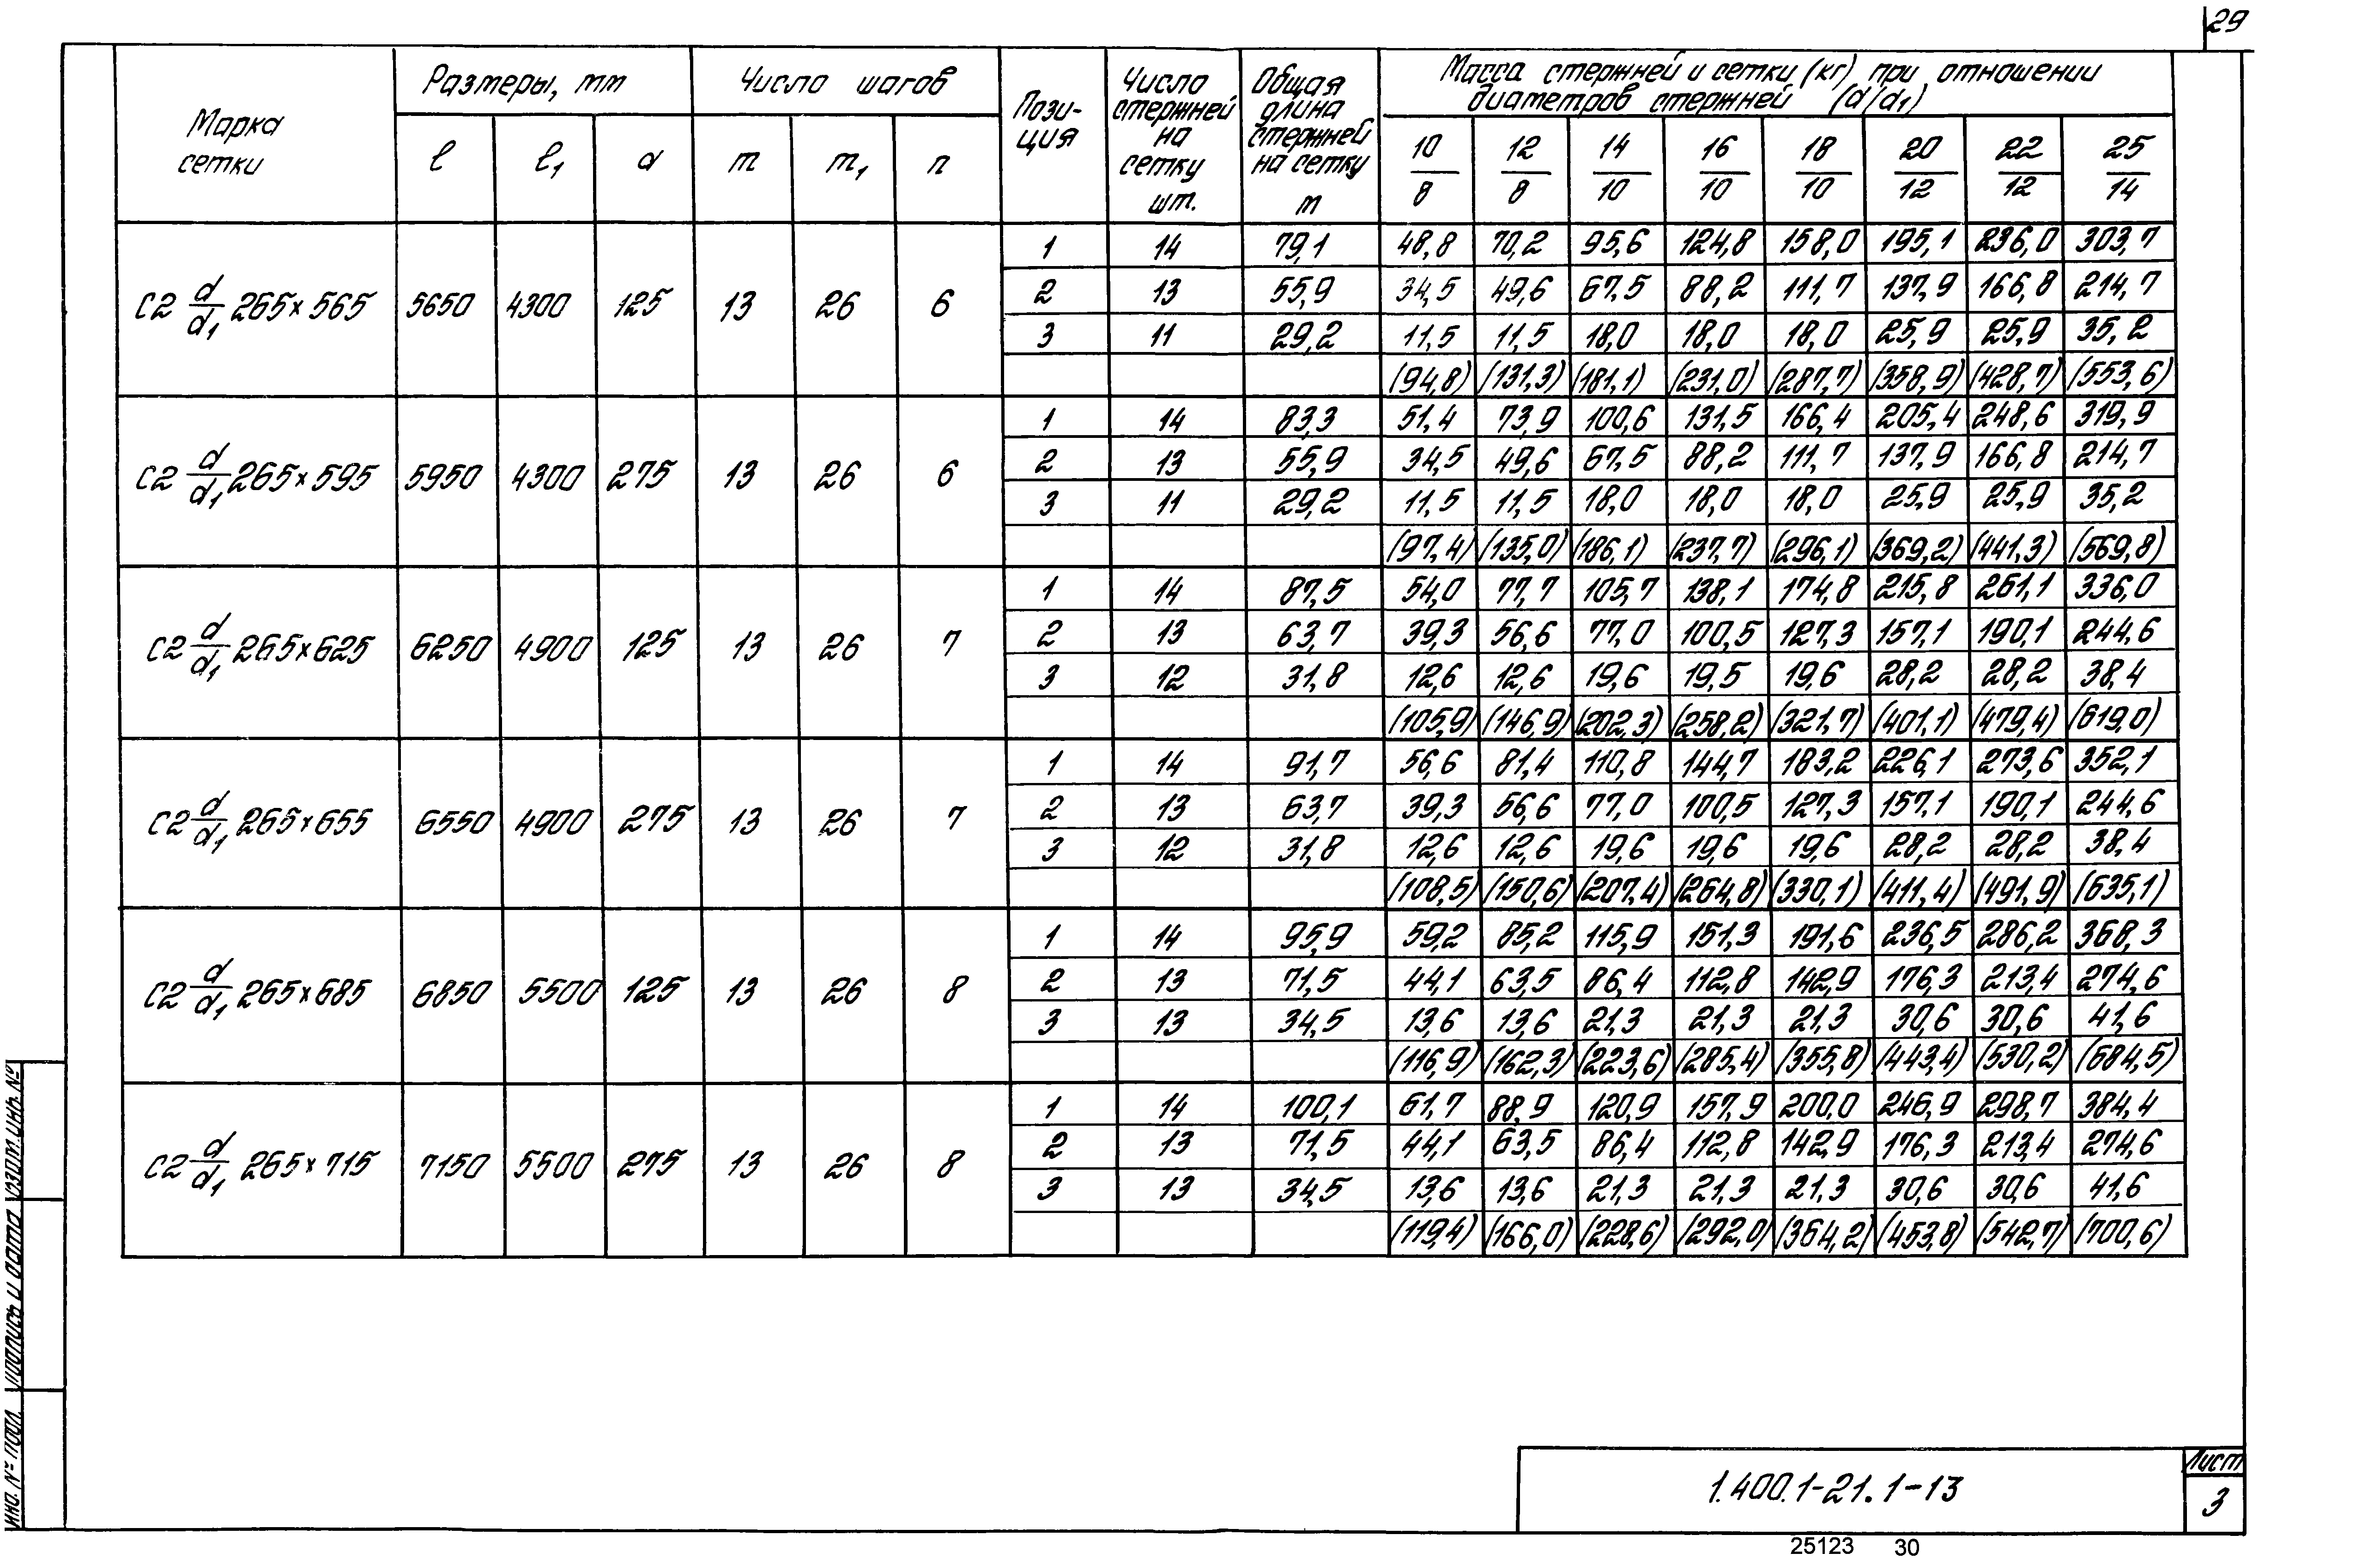 29
Марка сетки | Размеры, мм | Число шагов | Пози-ция | Число стержней на сетку шт. | Общая длина стержней на сетку м | Масса стержней и сетки (кг) при отношении диаметров стержней (d/d1)
l | l1 | a | m | m1 | n | 10/8 | 12/8 | 14/10 | 16/10 | 18/10 | 20/12 | 22/12 | 25/14
С2 d/d1 265×565 | 5650 | 4300 | 125 | 13 | 26 | 6
1 | 14 | 79,1 | 48,8 | 70,2 | 95,6 | 124,8 | 158,0 | 195,1 | 236,0 | 303,7
2 | 13 | 55,9 | 34,5 | 49,6 | 67,5 | 88,2 | 111,7 | 137,9 | 166,8 | 214,7
3 | 11 | 29,2 | 11,5 | 11,5 | 18,0 | 18,0 | 18,0 | 25,9 | 25,9 | 35,2
(94,8) | (131,3) | (181,1) | (231,0) | (287,7) | (358,9) | (428,7) | (553,6)
С2 d/d1 265×595 | 5950 | 4300 | 275 | 13 | 26 | 6
1 | 14 | 83,3 | 51,4 | 73,9 | 100,6 | 131,5 | 166,4 | 205,4 | 248,6 | 319,9
2 | 13 | 55,9 | 34,5 | 49,6 | 67,5 | 88,2 | 111,7 | 137,9 | 166,8 | 214,7
3 | 11 | 29,2 | 11,5 | 11,5 | 18,0 | 18,0 | 18,0 | 25,9 | 25,9 | 35,2
(97,4) | (135,0) | (186,1) | (237,7) | (296,1) | (369,2) | (441,3) | (569,8)
С2 d/d1 265×625 | 6250 | 4900 | 125 | 13 | 26 | 7
1 | 14 | 87,5 | 54,0 | 77,7 | 105,7 | 138,1 | 174,8 | 215,8 | 261,1 | 336,0
2 | 13 | 63,7 | 39,3 | 56,6 | 77,0 | 100,5 | 127,3 | 157,1 | 190,1 | 244,6
3 | 12 | 31,8 | 12,6 | 12,6 | 19,6 | 19,5 | 19,6 | 28,2 | 28,2 | 38,4
(105,9) | (146,9) | (202,3) | (258,2) | (321,7) | (401,1) | (479,4) | (619,0)
С2 d/d1 265×655 | 6550 | 4900 | 275 | 13 | 26 | 7
1 | 14 | 91,7 | 56,6 | 81,4 | 110,8 | 144,7 | 183,2 | 226,1 | 273,6 | 352,1
2 | 13 | 63,7 | 39,3 | 56,6 | 77,0 | 100,5 | 127,3 | 157,1 | 190,1 | 244,6
3 | 12 | 31,8 | 12,6 | 12,6 | 19,6 | 19,6 | 19,6 | 28,2 | 28,2 | 38,4
(108,5) | (150,6) | (207,4) | (264,8) | (330,1) | (411,4) | (491,9) | (635,1)
С2 d/d1 265×685 | 6850 | 5500 | 125 | 13 | 26 | 8
1 | 14 | 95,9 | 59,2 | 85,2 | 115,9 | 151,3 | 191,6 | 236,5 | 286,2 | 368,3
2 | 13 | 71,5 | 44,1 | 63,5 | 86,4 | 112,8 | 142,9 | 176,3 | 213,4 | 274,6
3 | 13 | 34,5 | 13,6 | 13,6 | 21,3 | 21,3 | 21,3 | 30,6 | 30,6 | 41,6
(116,9) | (162,3) | (223,6) | (285,4) | (355,8) | (443,4) | (530,2) | (684,5)
С2 d/d1 265×715 | 7150 | 5500 | 275 | 13 | 26 | 8
1 | 14 | 100,1 | 61,7 | 88,9 | 120,9 | 157,9 | 200,0 | 246,9 | 298,7 | 384,4
2 | 13 | 71,5 | 44,1 | 63,5 | 86,4 | 112,8 | 142,9 | 176,3 | 213,4 | 274,6
3 | 13 | 34,5 | 13,6 | 13,6 | 21,3 | 21,3 | 21,3 | 30,6 | 30,6 | 41,6
(119,4) | (166,0) | (228,6) | (292,0) | (364,2) | (453,8) | (542,7) | (700,6)
Инв. № подл. | Подпись и дата | Взам. инв. №
1.400.1-21.1-13
Лист
3
25123 30